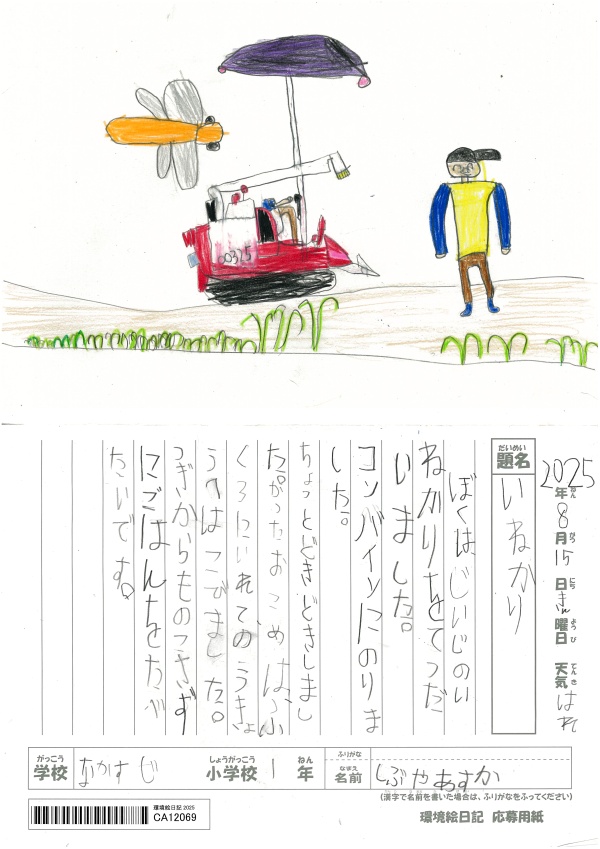 00315
2025年8月15日きん曜日 天気はれ
ねん
がつ
にち
ようび
てんき
だいめい
題名
いねかり
ぼくは、じいじのい
ねかりをてつだ
いました。
コンバインにのりま
した。
ちょっとどきどきしまし
た。かったおこめは、ふ
くろにいれて、のうきょ
うへはこびました。
つぎからものこさず
にごはんをたべ
たいです。
がっこう
学校
なかすじ
しょうがっこう
小学校
1
ねん
年
ふりがな
なまえ
名前
しぶやあすか
(漢字で名前を書いた場合は、ふりがなをふってください)
環境絵日記 2025
CA12069
環境絵日記 応募用紙